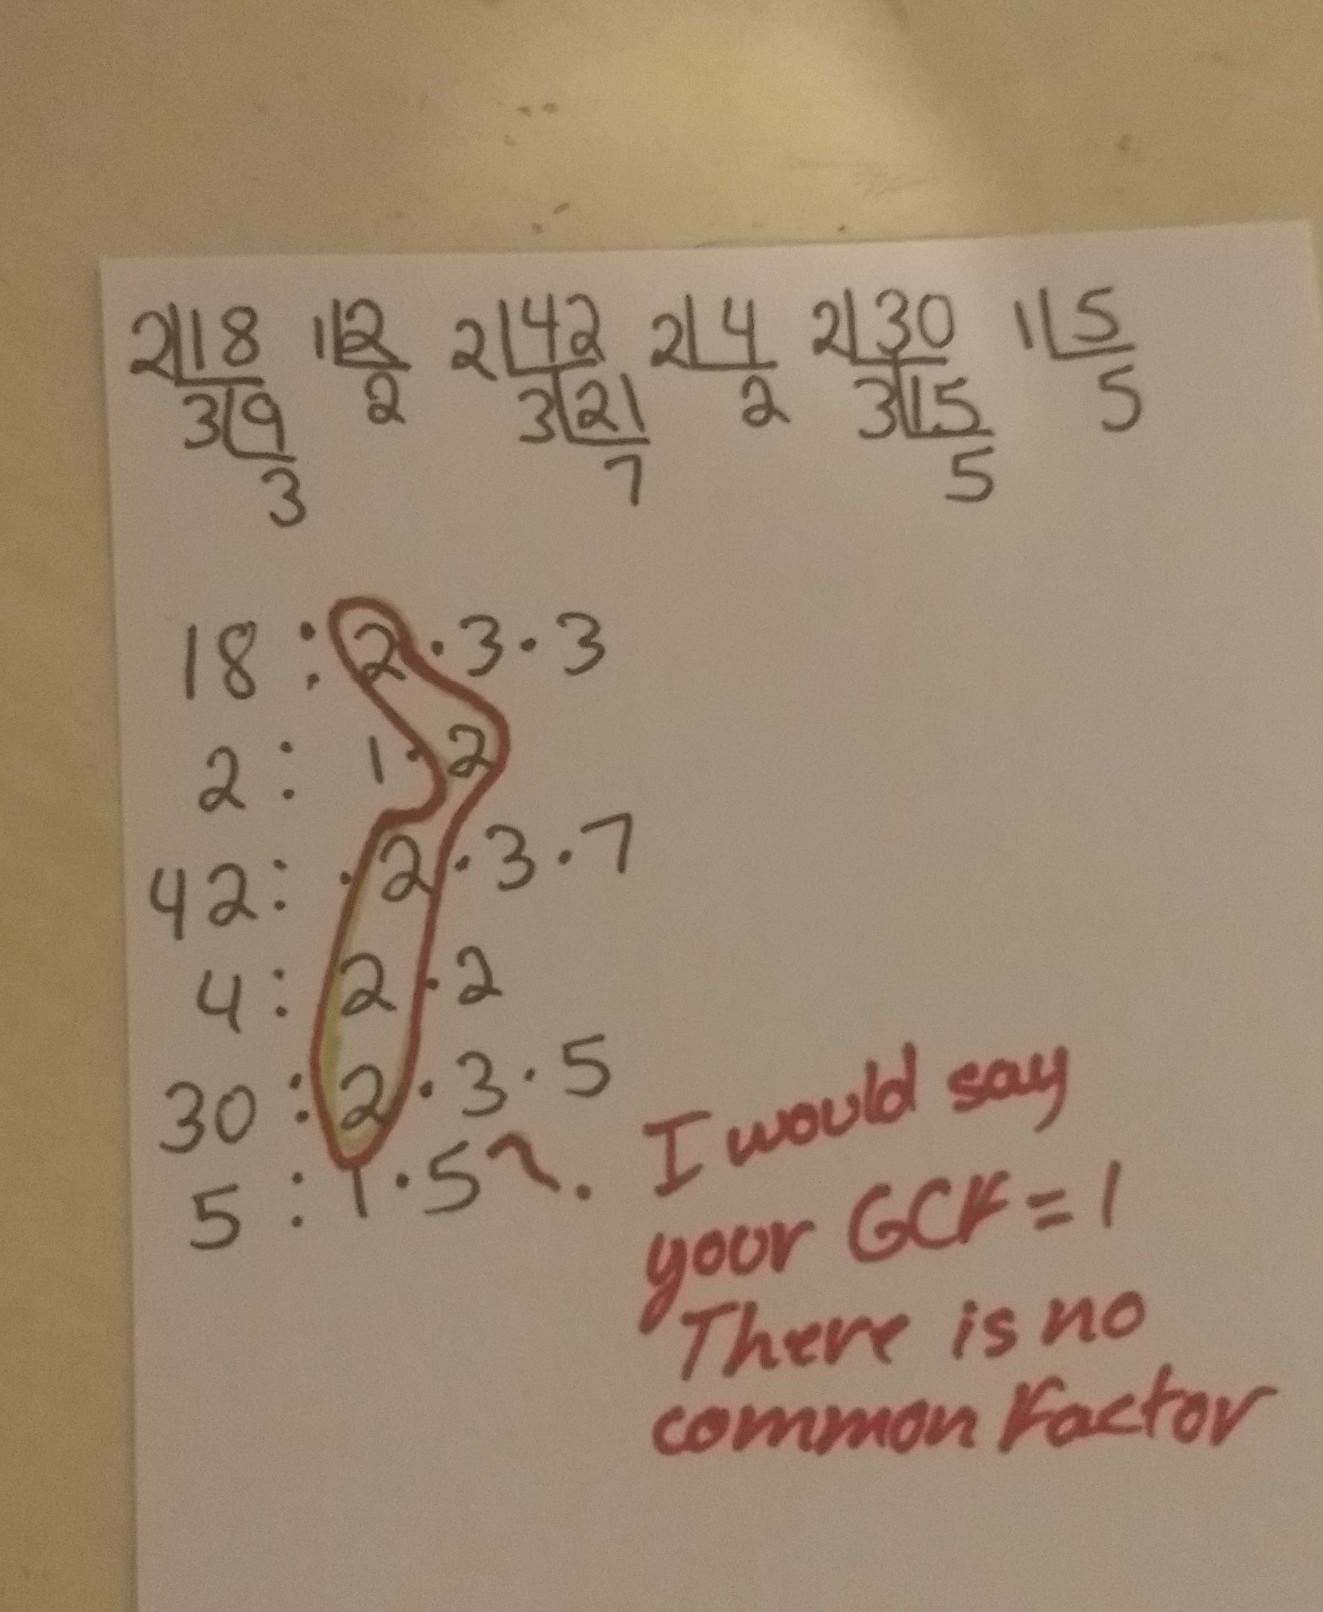 2 18 1 2 2 42 2 4 2 30 1 5
3 9 2 3 21 2 3 15 5
3 7 5
18 : 2 · 3 · 3
2 : 1 · 2
42 : · 2 · 3 · 7
4 : 2 · 2
30 : 2 · 3 · 5
5 : 1 · 5
I would say
your GCF = 1
There is no
common Factor